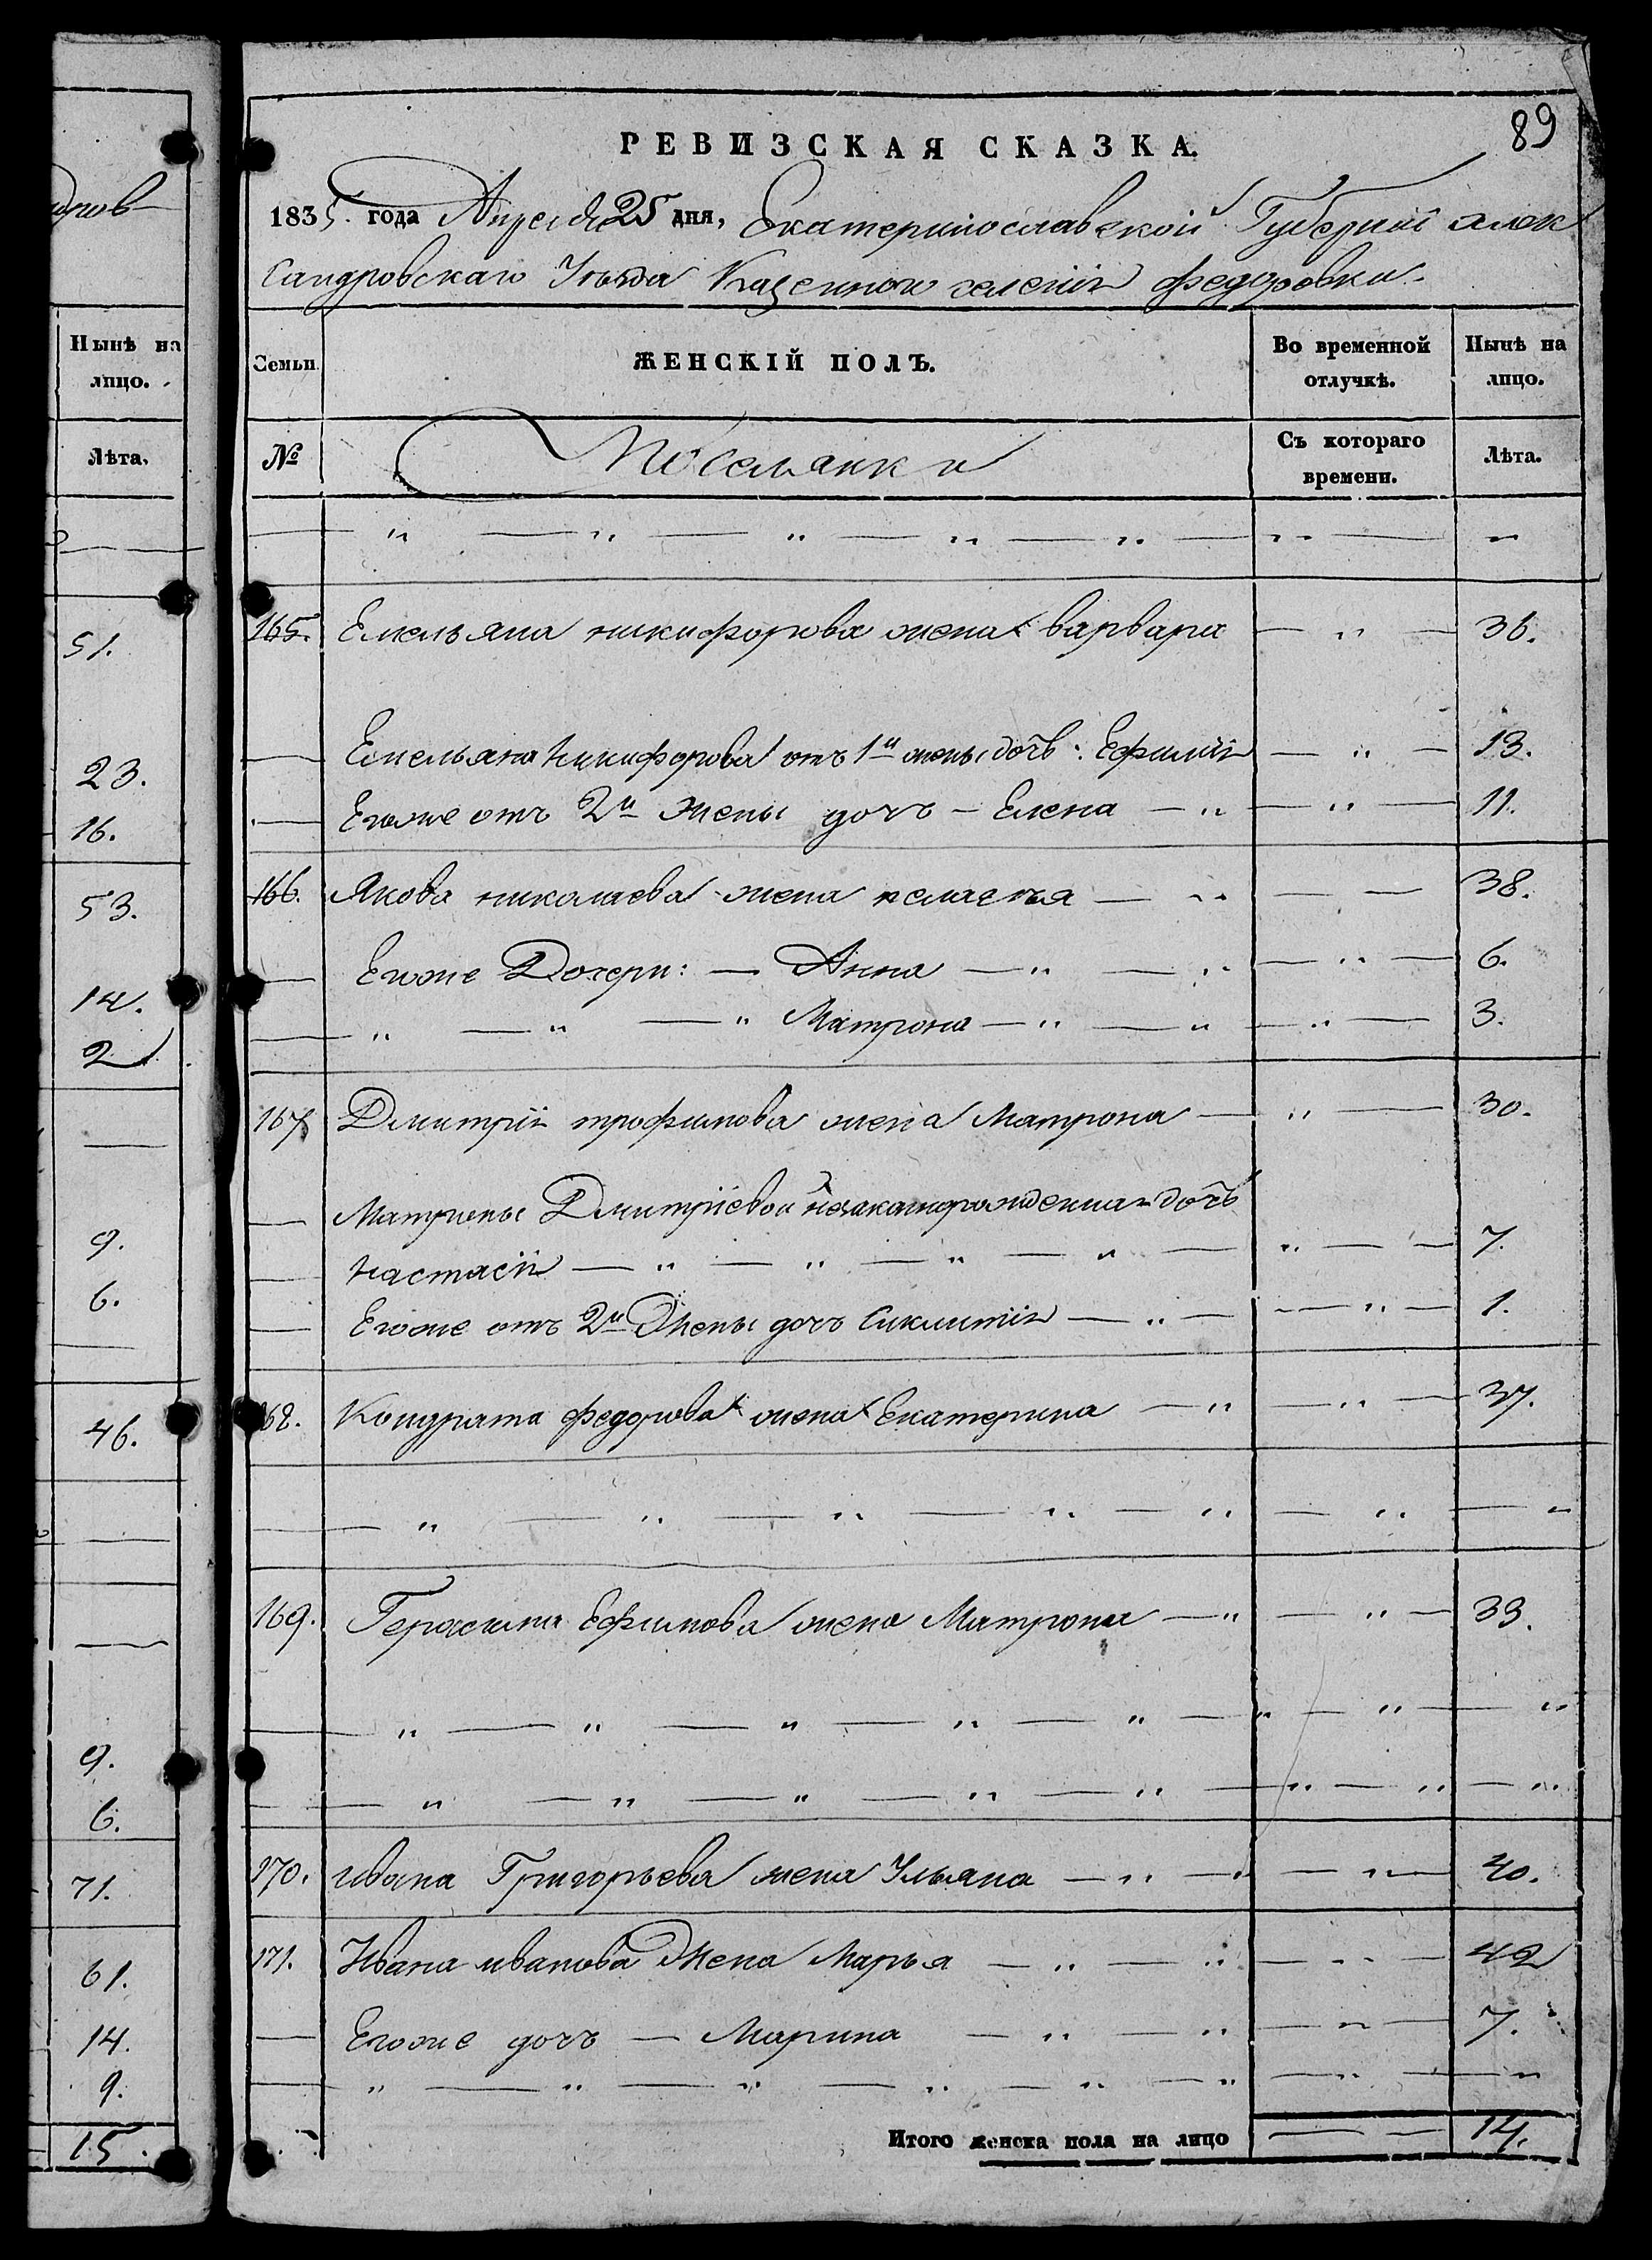 дров
Нынѣ на
лицо.
Лѣта.
51.
23.
16.
53.
14.
2
9.
6.
46.
9.
6.
71.
61.
14.
9.
15.
89
РЕВИЗСКАЯ СКАЗКА.
1835. года Апреля 25 дня, Екатеринославской Губерніи алек
сандровскаго Уѣзда Казеннои селенія федоровки.
Семьи ЖЕНСКІЙ ПОЛЪ. Во временной отлучкѣ. Нынѣ на лицо.
№ Поселянки Съ котораго времени. Лѣта.
— „ — „ — „ — „ — „ — „ — „
165. Емельяна никифорова жена варвара — „ — 36.
— Емельяна Никифорова отъ 1й жены дочь: Ефимія — „ — 13.
— Егоже отъ 2й жены дочъ — Елена — „ — „ — 11.
166. Якова николаева жена пелагѣя — „ — — 38.
— Егоже Дочери: — Анна — „ — „ — „ — 6.
— „ — „ — „ Матрона — „ — „ — „ — 3.
167 Дмитрія трофимова жена Матрона — „ — 30.
— Матрены Дмитріевои незаконорожденная дочь
— настасія — „ — „ — „ — „ — „ — 7.
— Егоже отъ 2й Жены дочъ Сиклитія — „ — — „ — 1.
168. Кондрата федорова жена Екатерина — „ — „ — 37.
— „ — „ — „ — „ — „ — „ — „
169. Герасима Ефимова жена Матрона — „ — „ — 33.
— „ — „ — „ — „ — „ — „ — „ — „
— „ — „ — „ — „ — „ — „ — „ — „
170. ивана Григорьева жена Ульяна — „ — „ — 40.
171. Ивана иванова Жена Марья — „ — „ — „ — 42
— Егоже дочъ — Марина — „ — „ — „ — 7.
— „ — „ — „ — „ — „ — „ — „ — „
Итого женска пола на лицо — — 14.